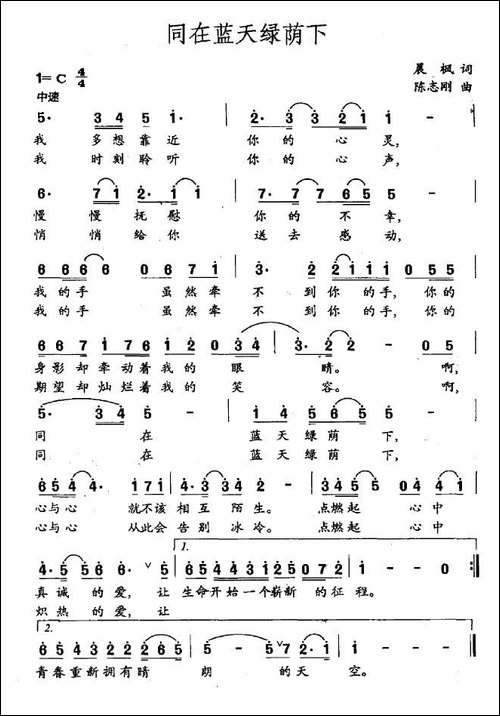 同在蓝天绿荫下
1=C 4/4
晨枫 词
中速
陈志刚 曲
5· 3 4 5 1· | 2· 3 3 2 1 1 - |
我 多想靠近 你的心灵,
我 时刻聆听 你的心声,
6· 7 1 2· 1 1 | 7· 7 7 6 5 5 - |
慢 慢抚慰 你的不幸,
悄 悄给你 送去感动,
6 6 6 6 0 6 7 1 | 3· 2 2 1 1 1 0 5 5 |
我的手 虽然牵 不到你的手, 你的
我的手 虽然牵 不到你的手, 你的
6 6 7 1 7 6 1 2 0 3 4 | 3· 2 2 - 0 5 |
身影却牵动着我的眼 睛。 啊,
期望却灿烂着我的笑 容。 啊,
5· 3 4 5 - | 1 4 5 6 5 5 - |
同 在 蓝天绿荫下,
同 在 蓝天绿荫下,
6 5 4 4· 1 7 1 | 4· 3 3 4 2 - | 3 4 5 5 0 4 4 1 |
心与心 就不该 相互陌生。 点燃起 心中
心与心 从此会 告别冰冷。 点燃起 心中
1.
4· 5 5 6 6· ∨ 5 | 6 5 4 4 3 1 2 5 0 7 2 | 1 - - 0 :|
真诚的爱, 让 生命开始一个崭新的征程。
炽热的爱, 让
2.
6 5 4 4 3 1 6 5 | 5 - 5· ∨7 2· | 1 - - - ‖
青春重新拥有晴 朗 的天 空。